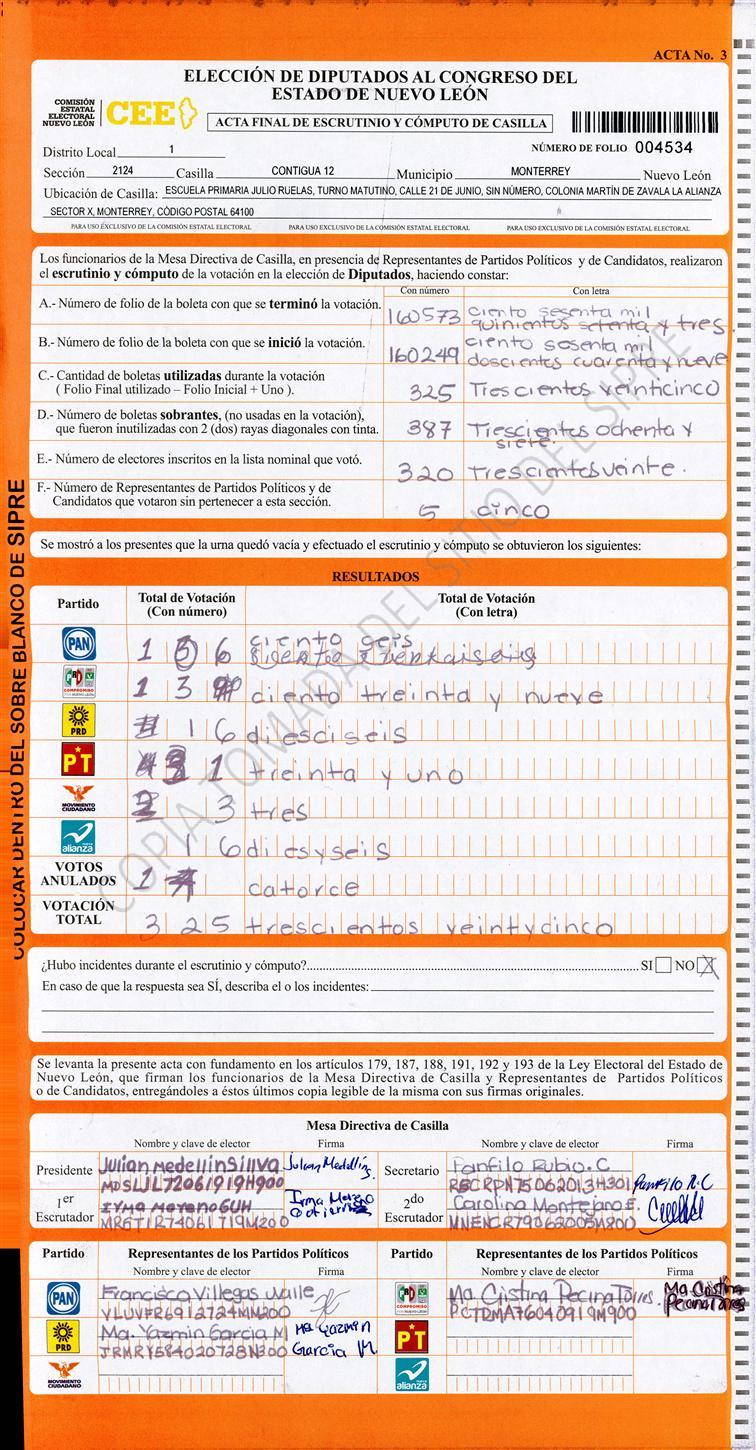 ACTA No. 3
ELECCIÓN DE DIPUTADOS AL CONGRESO DEL
ESTADO DE NUEVO LEÓN
COMISIÓN
ESTATAL
ELECTORAL
NUEVO LEÓN
CEE
ACTA FINAL DE ESCRUTINIO Y CÓMPUTO DE CASILLA
Distrito Local 1 NÚMERO DE FOLIO 004534
Sección 2124 Casilla CONTIGUA 12 Municipio MONTERREY Nuevo León
Ubicación de Casilla: ESCUELA PRIMARIA JULIO RUELAS, TURNO MATUTINO, CALLE 21 DE JUNIO, SIN NÚMERO, COLONIA MARTÍN DE ZAVALA LA ALIANZA
SECTOR X, MONTERREY, CÓDIGO POSTAL 64100
PARA USO EXCLUSIVO DE LA COMISIÓN ESTATAL ELECTORAL PARA USO EXCLUSIVO DE LA COMISIÓN ESTATAL ELECTORAL PARA USO EXCLUSIVO DE LA COMISIÓN ESTATAL ELECTORAL
Los funcionarios de la Mesa Directiva de Casilla, en presencia de Representantes de Partidos Políticos y de Candidatos, realizaron
el escrutinio y cómputo de la votación en la elección de Diputados, haciendo constar:
Con número Con letra
A.- Número de folio de la boleta con que se terminó la votación. 160573 ciento sesenta mil
quinientos setenta y tres
B.- Número de folio de la boleta con que se inició la votación. 160249 ciento sesenta mil
doscientos cuarenta y nueve
C.- Cantidad de boletas utilizadas durante la votación
( Folio Final utilizado – Folio Inicial + Uno ). 325 Trescientos veinticinco
D.- Número de boletas sobrantes, (no usadas en la votación),
que fueron inutilizadas con 2 (dos) rayas diagonales con tinta. 387 Trescientos ochenta y
siete
E.- Número de electores inscritos en la lista nominal que votó. 320 trescientos veinte.
F.- Número de Representantes de Partidos Políticos y de
Candidatos que votaron sin pertenecer a esta sección. 5 cinco
Se mostró a los presentes que la urna quedó vacía y efectuado el escrutinio y cómputo se obtuvieron los siguientes:
RESULTADOS
Partido Total de Votación
(Con número) Total de Votación
(Con letra)
PAN 1 6 ciento seis
COMPROMISO
POR NUEVO LEÓN 1 3 ciento treinta y nueve
PRD 1 6 diesciseis
PT 3 1 treinta y uno
MOVIMIENTO
CIUDADANO 3 tres
nueva
alianza 1 6 diesyseis
VOTOS
ANULADOS 1 catorce
VOTACIÓN
TOTAL 3 2 5 trescientos veintycinco
¿Hubo incidentes durante el escrutinio y cómputo? SI NO X
En caso de que la respuesta sea SÍ, describa el o los incidentes:
Se levanta la presente acta con fundamento en los artículos 179, 187, 188, 191, 192 y 193 de la Ley Electoral del Estado de
Nuevo León, que firman los funcionarios de la Mesa Directiva de Casilla y Representantes de Partidos Políticos
o de Candidatos, entregándoles a éstos últimos copia legible de la misma con sus firmas originales.
Mesa Directiva de Casilla
Nombre y clave de elector Firma Nombre y clave de elector Firma
Presidente Julian Medellin Sillva Julian Medellin
MDSLJL72061919H900
Secretario Panfilo Rubio.C Panfilo R.C
RBCRPN75062013H301
1er
Escrutador Irma Moreno GUH Irma Moreno
MRGTIR74061719M200
2do
Escrutador Carolina Montejano E.
MNENCR79062005M800
Partido Representantes de los Partidos Políticos Partido Representantes de los Partidos Políticos
Nombre y clave de elector Firma Nombre y clave de elector Firma
PAN Francisca Villegas Valle
VLUVFR6912724MM200
COMPROMISO
POR NUEVO LEÓN Ma. Cristina Pecina Torres. Ma Cristina
Pecina Torres
PCTRMA76040919M900
PRD Ma. Yazmin Garcia M Ma Yazmin
Garcia M
JRMRYS84020728M300
PT
MOVIMIENTO
CIUDADANO
nueva
alianza
COLOCAR DENTRO DEL SOBRE BLANCO DE SIPRE
COPIA TOMADA DEL SITIO DEL SIPRE